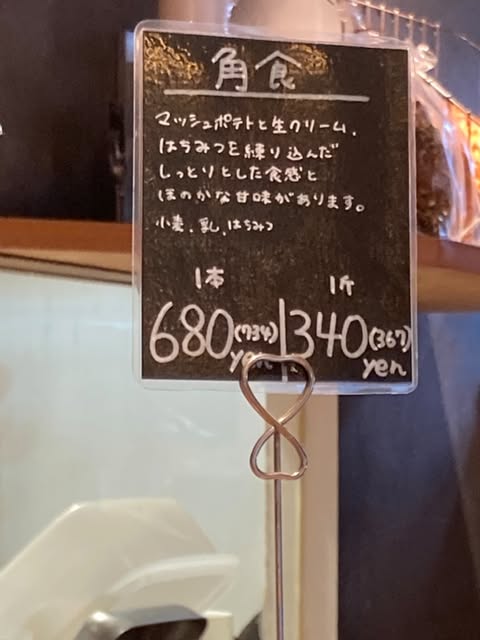 角食
マッシュポテトと生クリーム、
はちみつを練り込んだ
しっとりとした食感と
ほのかな甘味があります。
小麦、乳、はちみつ
1本 1斤
680(734)yen 340(367)yen